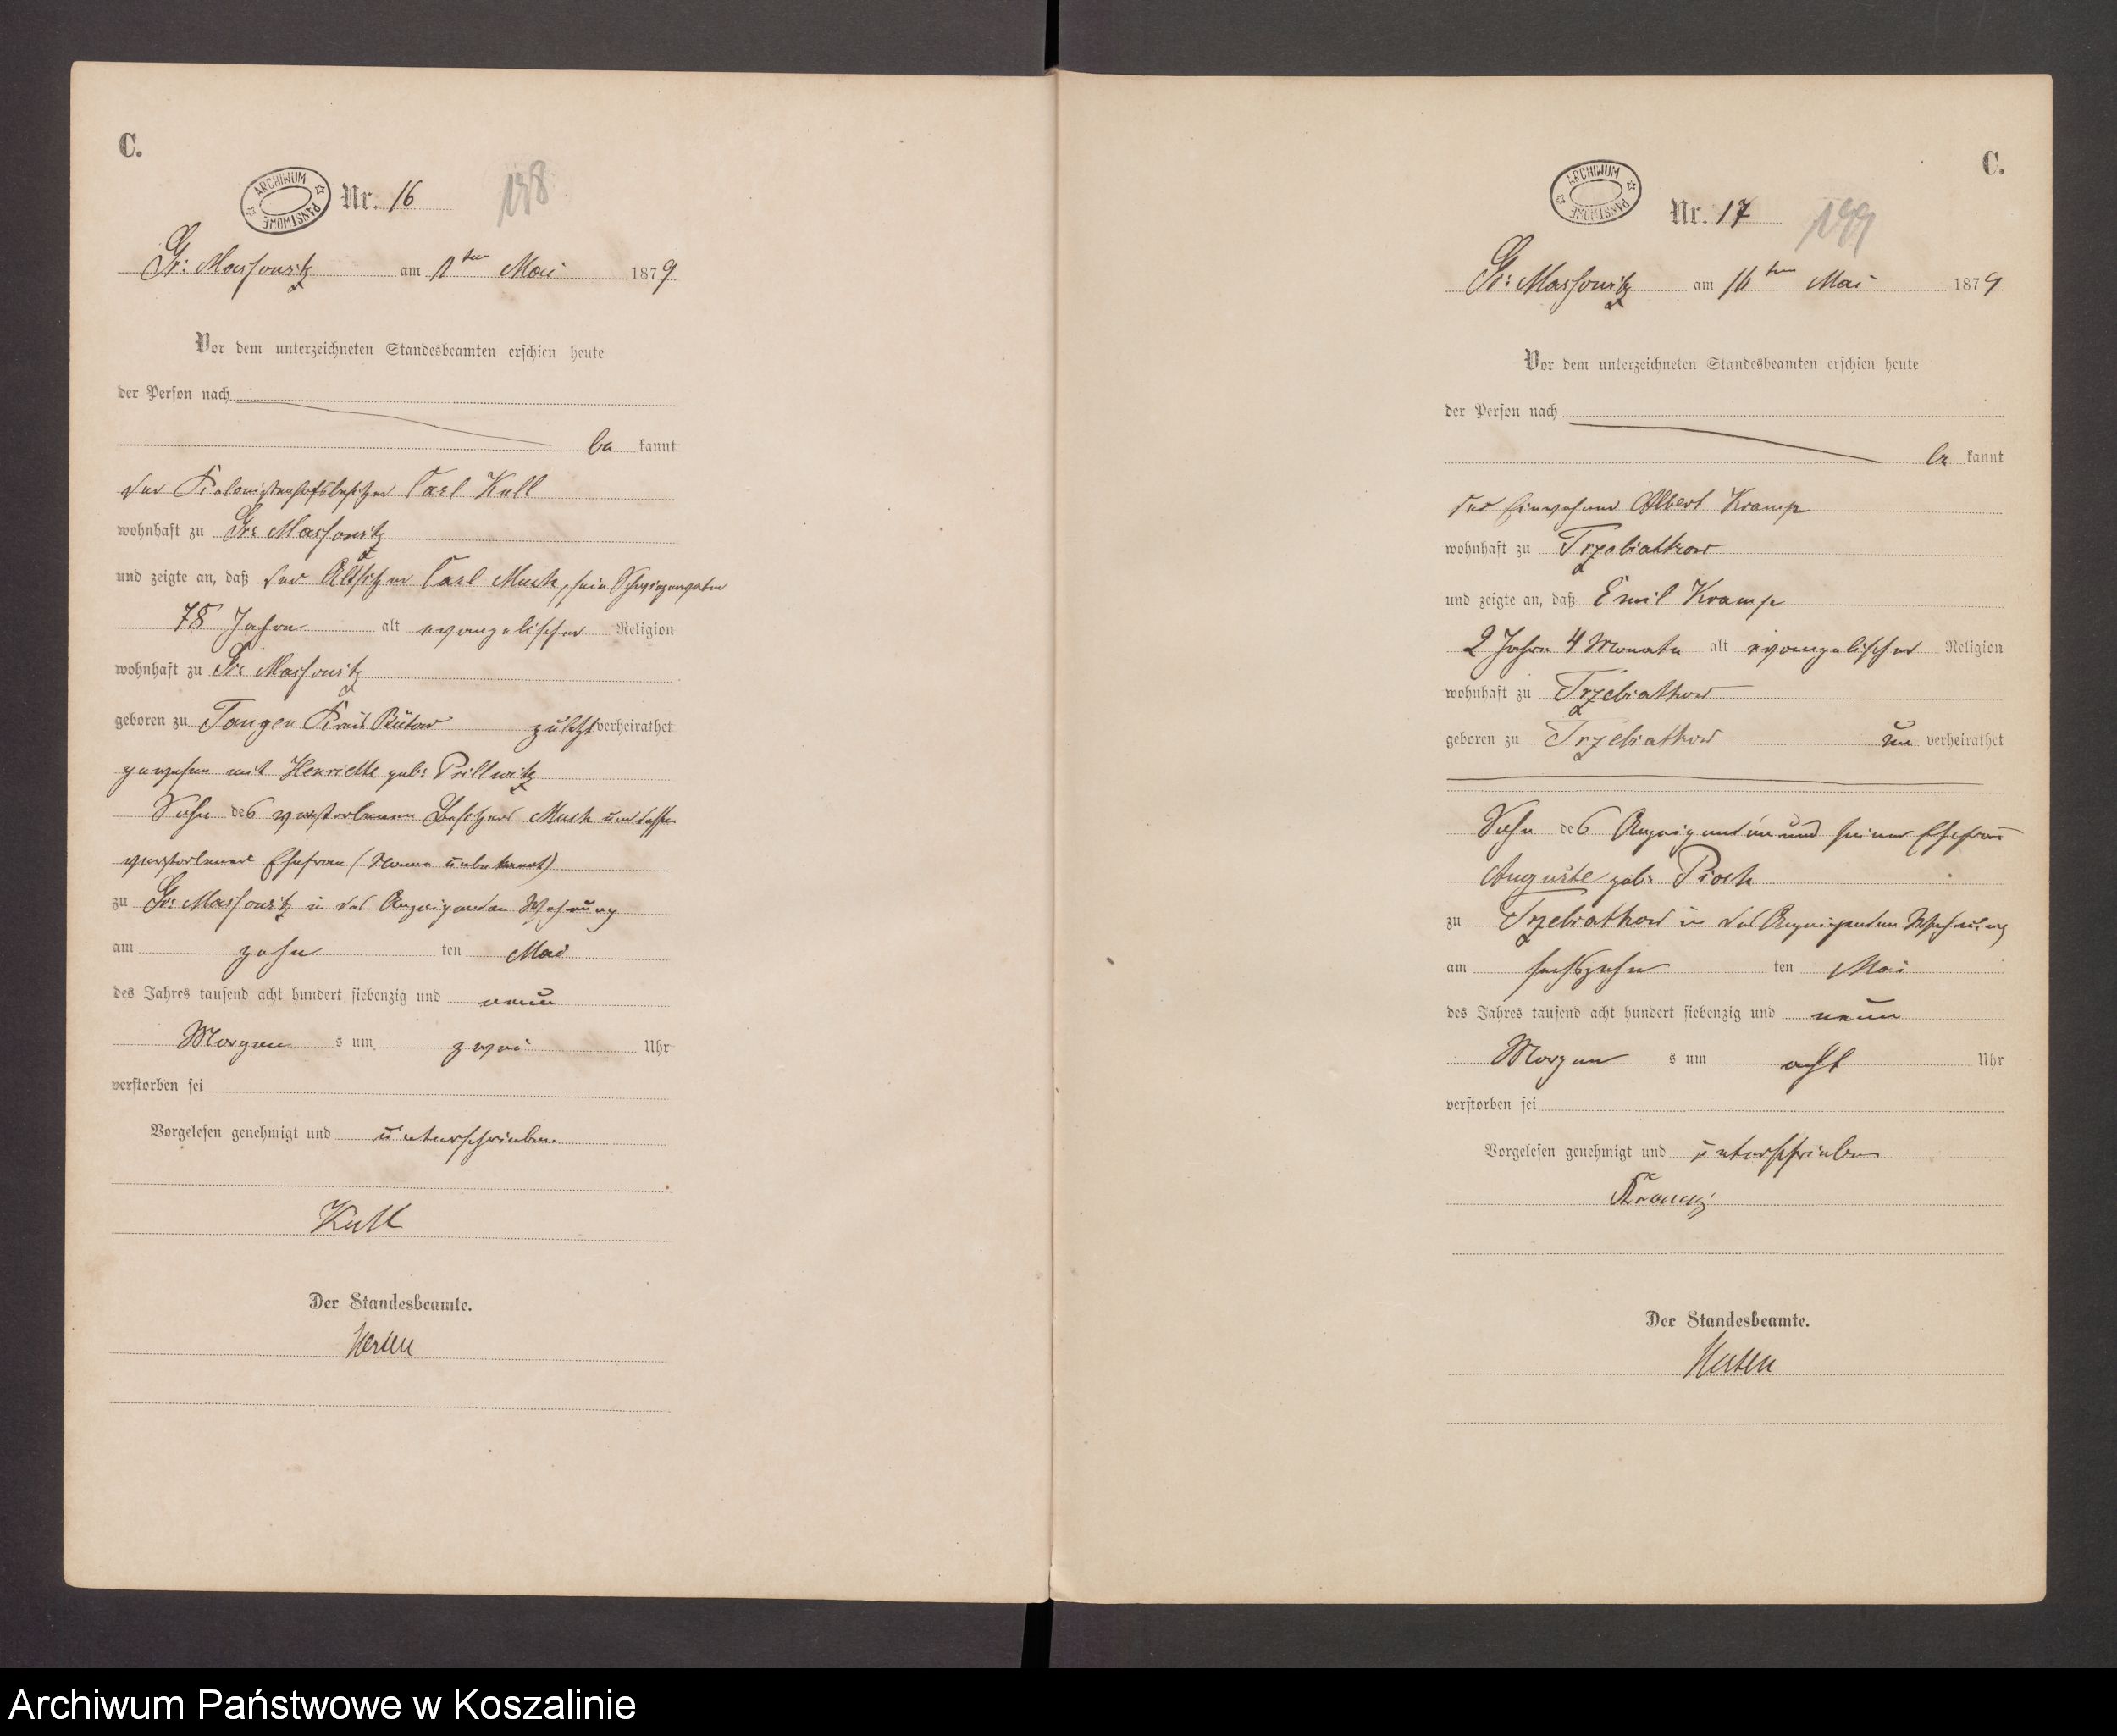 C.
ARCHIWUM PAŃSTWOWE
Nr. 16
198
Gr: Massowitz am 1ten Mai 1879
Vor dem unterzeichneten Standesbeamten erschien heute
der Person nach
be kannt
der Kolonistenhofsbesitzer Carl Kull
wohnhaft zu Gr: Massowitz
und zeigte an, daß der Altsitzer Carl Much, sein Schwiegervater
78 Jahre alt evangelischer Religion
wohnhaft zu Gr: Massowitz
geboren zu Tangen Kreis Bütow zuletzt verheirathet
gewesen mit Henriette geb: Prillwitz
Sohn des verstorbenen Besitzers Much und dessen
verstorbener Ehefrau (Name unbekannt)
zu Gr: Massowitz in des Anzeigenden Wohnung
am zehn ten Mai
des Jahres tausend acht hundert siebenzig und neun
Morgen s um zwei Uhr
verstorben sei
Vorgelesen genehmigt und unterschrieben
Kull
Der Standesbeamte.
C.
ARCHIWUM PAŃSTWOWE
Nr. 17
199
Gr: Massowitz am 16ten Mai 1879
Vor dem unterzeichneten Standesbeamten erschien heute
der Person nach
be kannt
der Einwohner Albert Kramp
wohnhaft zu Trzebiatkow
und zeigte an, daß Emil Kramp
2 Jahre 4 Monate alt evangelischer Religion
wohnhaft zu Trzebiatkow
geboren zu Trzebiatkow un verheirathet
Sohn des Anzeigenden und seiner Ehefrau
Auguste geb: Pioch
zu Trzebiatkow in des Anzeigenden Wohnung
am sechszehn ten Mai
des Jahres tausend acht hundert siebenzig und neun
Morgen s um acht Uhr
verstorben sei
Vorgelesen genehmigt und unterschrieben
Kramp
Der Standesbeamte.
Archiwum Państwowe w Koszalinie